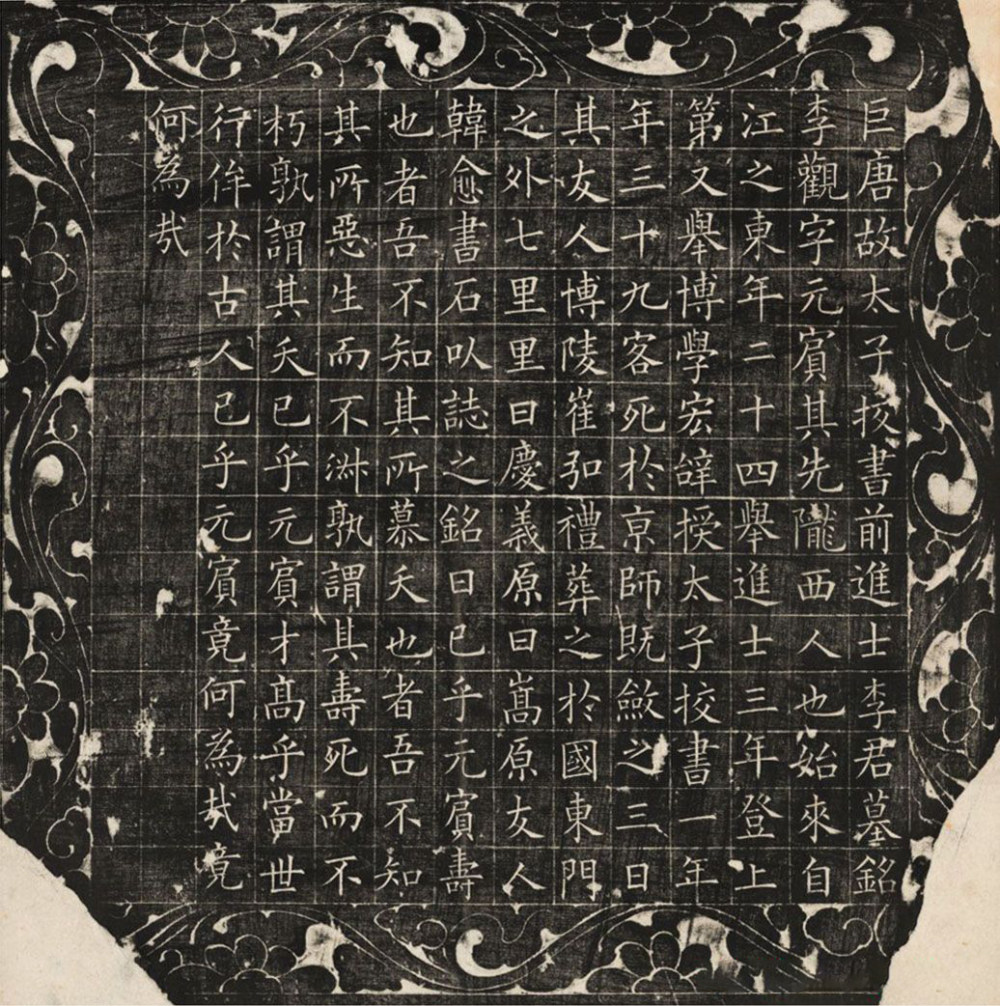 巨唐故太子挍書前進士李君墓銘
李觀字元賔其先隴西人也始來自
江之東年二十四舉進士三年登上
第又舉博學宏辭授太子挍書一年
年三十九客死於亰師既斂之三日
其友人博陵崔弘禮葬之於國東門
之外七里里曰慶義原曰嵩原友人
韓愈書石以誌之銘曰已乎元賔壽
也者吾不知其所慕夭也者吾不知
其所惡生而不淑孰謂其壽死而不
朽孰謂其夭已乎元賔才髙乎當世
行侔於古人已乎元賔竟何為哉竟
何為哉